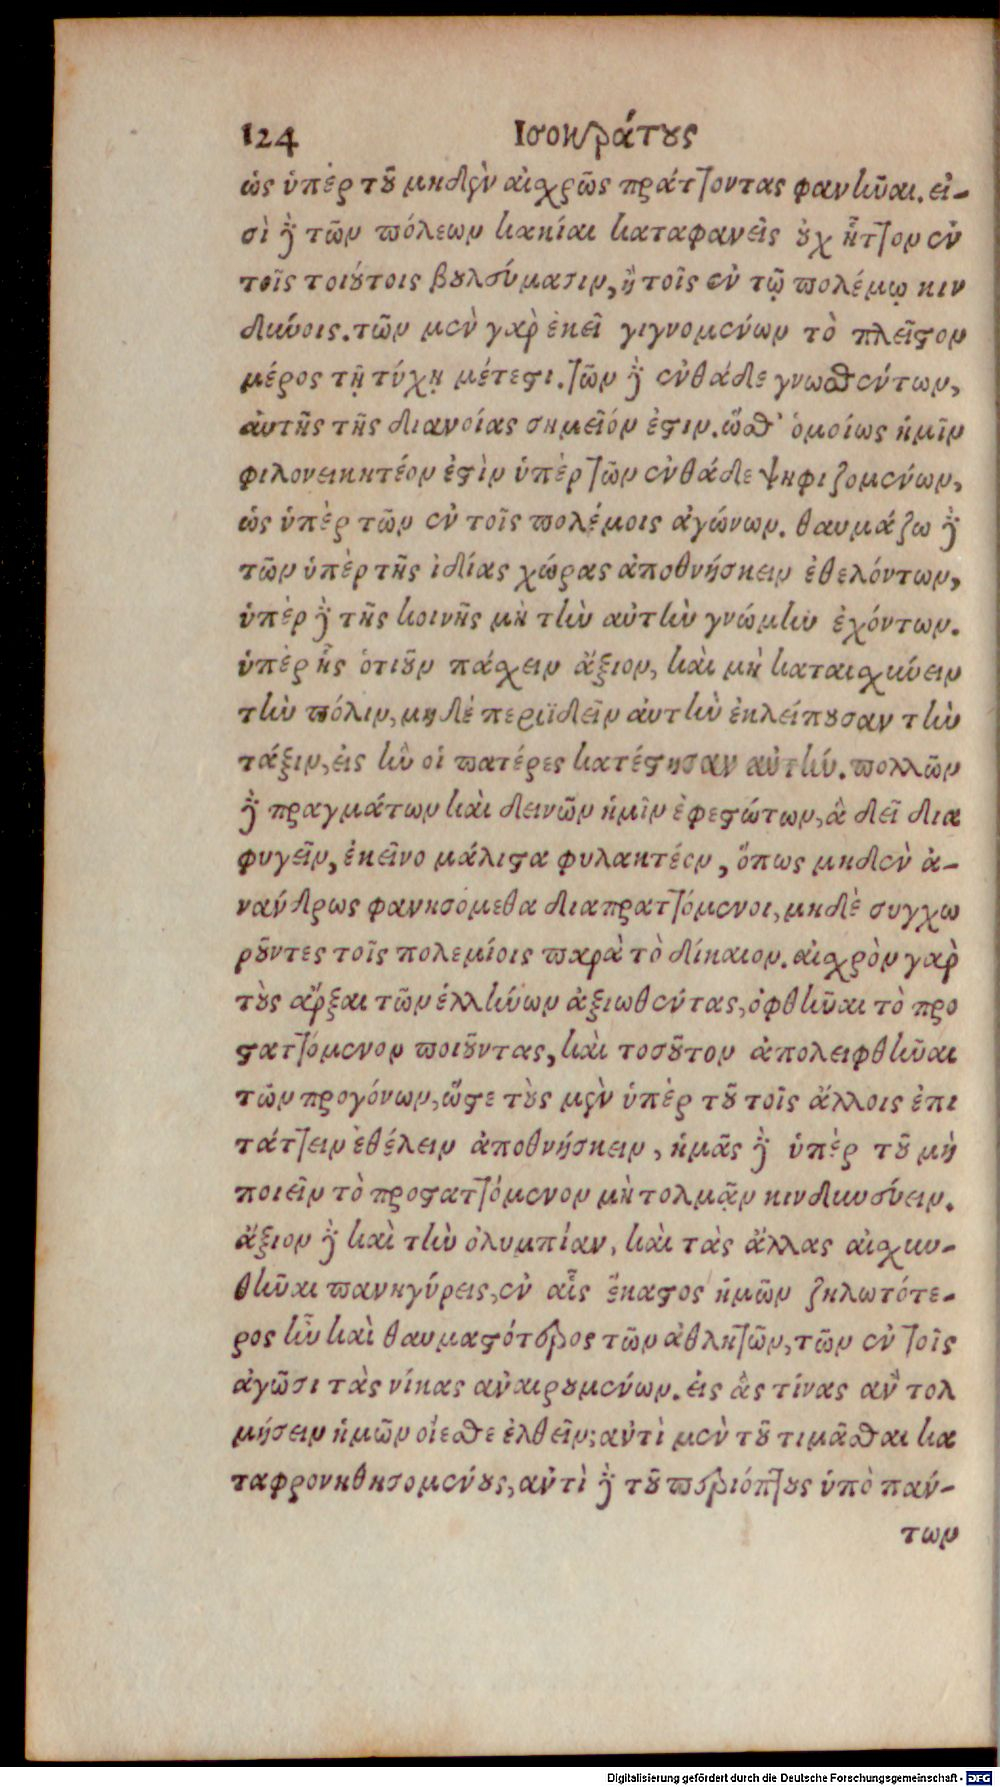 124 Ισοκράτους
ὡς ὑπὲρ τοῦ μηδὲν αἰσχρῶς πράττοντας φανῆναι. εἰ-
σὶ δὲ τῶν πόλεων κακίαι καταφανεῖς οὐχ ἧττον ἐν
τοῖς τοιούτοις βουλεύμασιν, ἢ τοῖς ἐν τῷ πολέμῳ κιν
δύνοις. τῶν μὲν γὰρ ἐκεῖ γιγνομένων τὸ πλεῖστον
μέρος τῇ τύχῃ μέτεστι. τῶν δὲ ἐνθάδε γνωσθέντων,
αὐτῆς τῆς διανοίας σημεῖόν ἐστιν. ὥσθ' ὁμοίως ἡμῖν
φιλονεικητέον ἐστὶν ὑπὲρ τῶν ἐνθάδε ψηφιζομένων,
ὡς ὑπὲρ τῶν ἐν τοῖς πολέμοις ἀγώνων. θαυμάζω δὲ
τῶν ὑπὲρ τῆς ἰδίας χώρας ἀποθνήσκειν ἐθελόντων,
ὑπὲρ δὲ τῆς κοινῆς μὴ τὴν αὐτὴν γνώμην ἐχόντων.
ὑπὲρ ἧς ὁτιοῦν πάσχειν ἄξιον, καὶ μὴ καταισχύνειν
τὴν πόλιν, μηδὲ περιϊδεῖν αὐτὴν ἐκλείπουσαν τὴν
τάξιν, εἰς ἣν οἱ πατέρες κατέστησαν αὐτήν. πολλῶν
δὲ πραγμάτων καὶ δεινῶν ἡμῖν ἐφεστώτων, ἃ δεῖ δια
φυγεῖν, ἐκεῖνο μάλιστα φυλακτέον, ὅπως μηδὲν ἀ-
νάνδρως φανησόμεθα διαπραττόμενοι, μηδὲ συγχω
ροῦντες τοῖς πολεμίοις παρὰ τὸ δίκαιον. αἰσχρὸν γὰρ
τοὺς ἄρξαι τῶν ἑλλήνων ἀξιωθέντας, ὀφθῆναι τὸ προ
σταττόμενον ποιοῦντας, καὶ τοσοῦτον ἀπολειφθῆναι
τῶν προγόνων, ὥστε τοὺς μὲν ὑπὲρ τοῦ τοῖς ἄλλοις ἐπι
τάττειν ἐθέλειν ἀποθνήσκειν, ἡμᾶς δὲ ὑπὲρ τοῦ μὴ
ποιεῖν τὸ προσταττόμενον μὴ τολμᾷν κινδυνεύειν.
ἄξιον δὲ καὶ τὴν ὀλυμπίαν, καὶ τὰς ἄλλας αἰσχυν-
θῆναι πανηγύρεις, ἐν αἷς ἕκαστος ἡμῶν ζηλωτότε-
ρος ἦν καὶ θαυμαστότερος τῶν ἀθλητῶν, τῶν ἐν τοῖς
ἀγῶσι τὰς νίκας ἀναιρουμένων. εἰς ἃς τίνας ἂν τολ
μήσειν ἡμῶν οἴεσθε ἐλθεῖν; ἀντὶ μὲν τοῦ τιμᾶσθαι κα
ταφρονηθησομένους, ἀντὶ δὲ τοῦ περιόπτους ὑπὸ πάν-
των
Digitalisierung gefördert durch die Deutsche Forschungsgemeinschaft - DFG